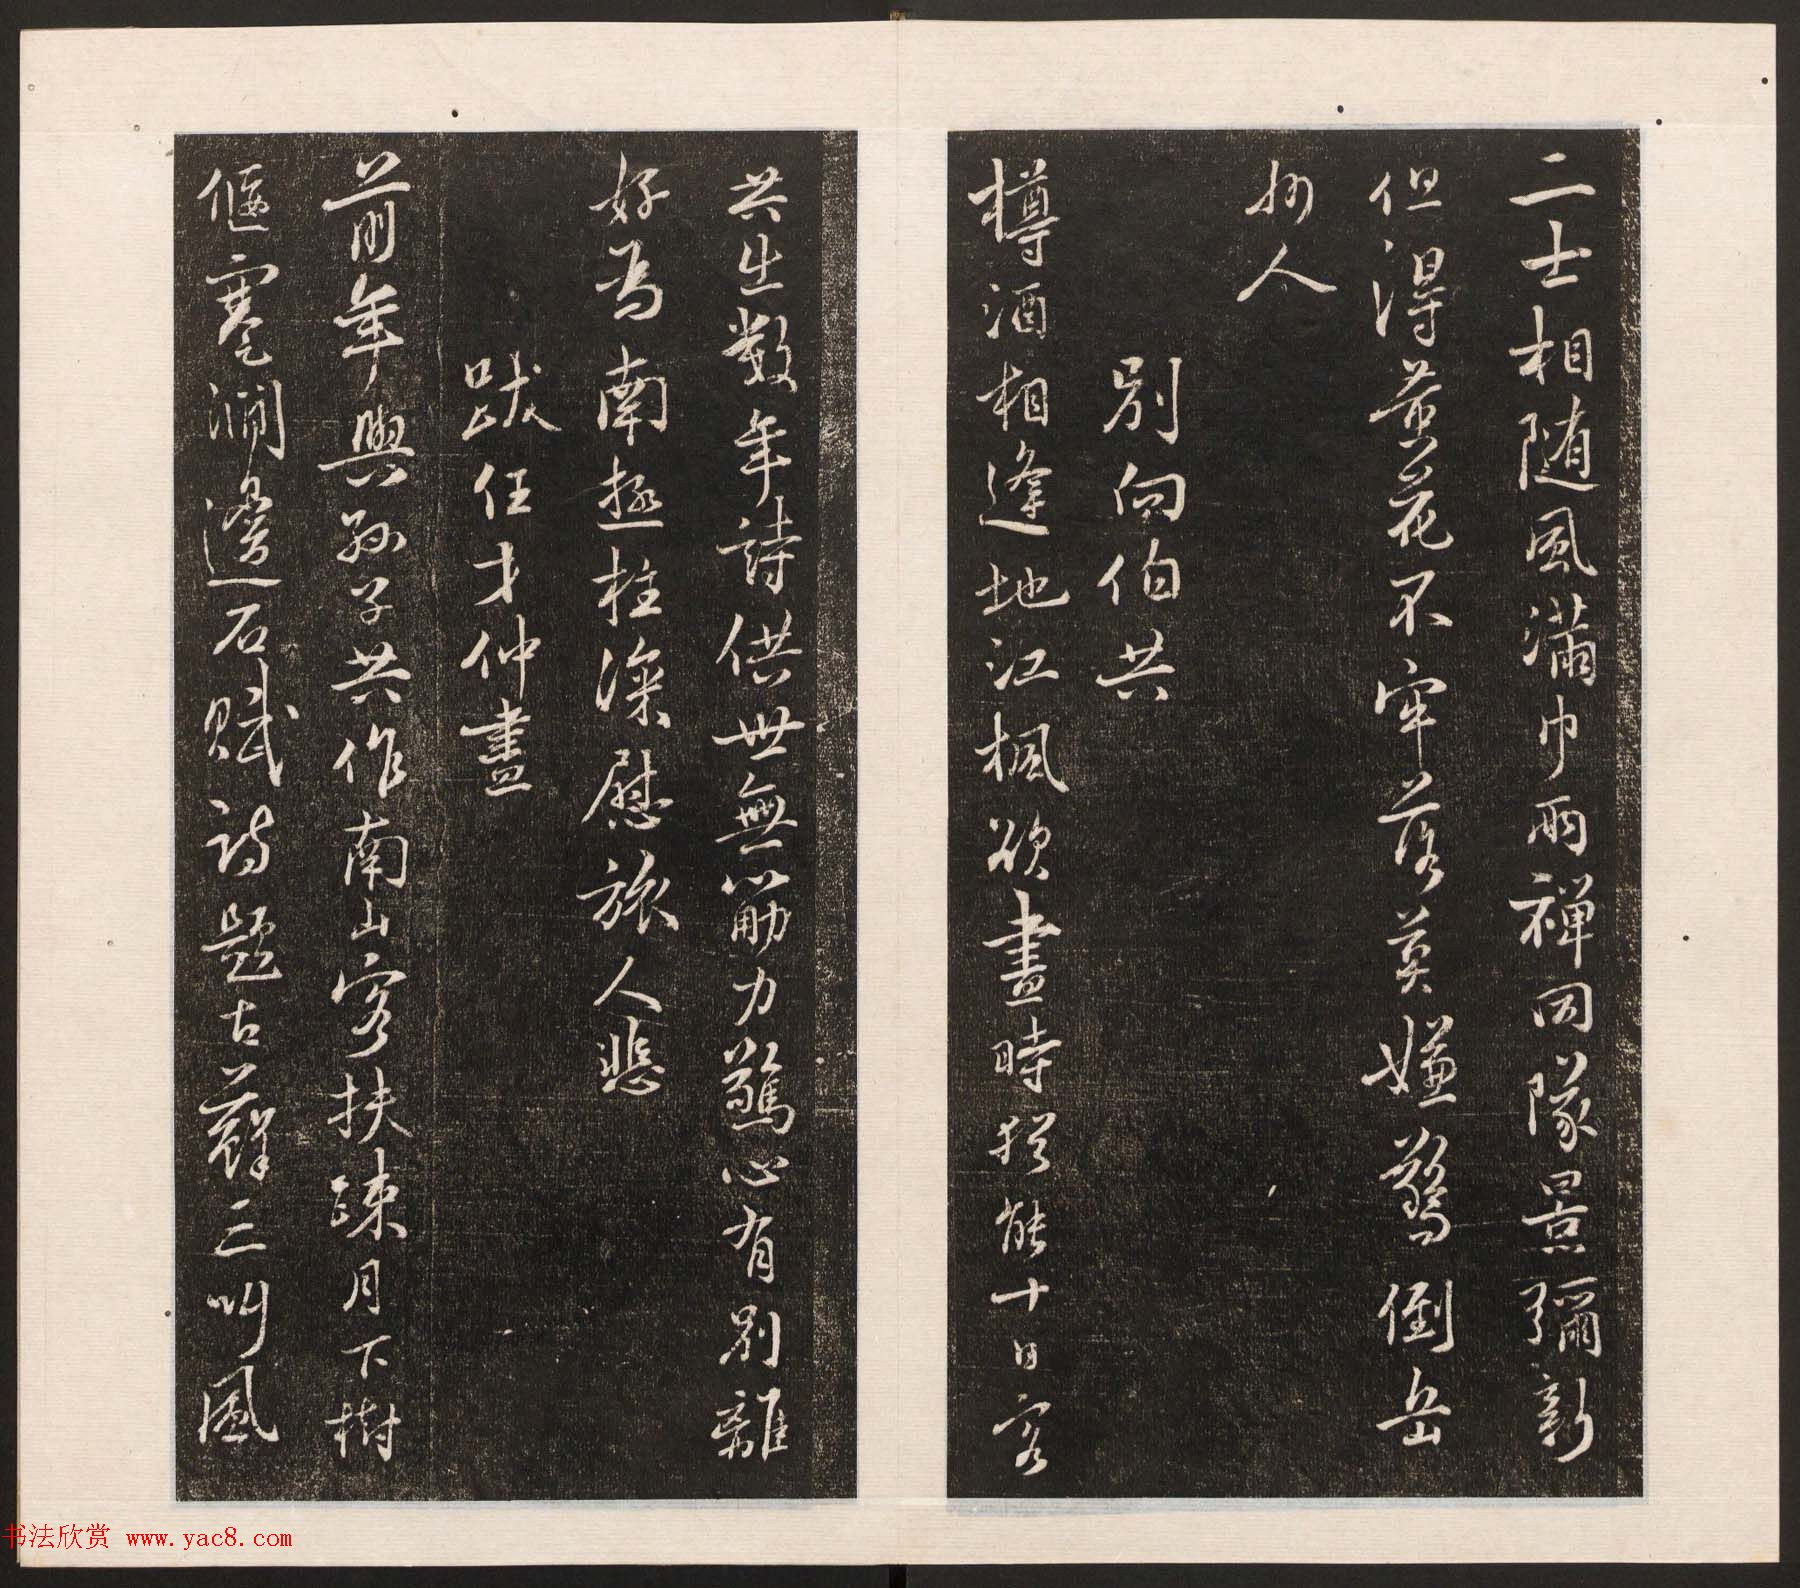 二士相随風滿巾兩禅同隊景彌新
但得黃花不牢落莫嫌驚倒岳
州人
別向伯共
樽酒相逢地江楓欲盡時猶能十日客
共出數年詩供世無筋力驚心有別離
好為南極柱深慰旅人悲
跋任才仲畫
前年與孫子共作南山客扶疎月下樹
偃蹇澗邊石賦詩題古蘚三叫風
书法欣赏 www.yac8.com